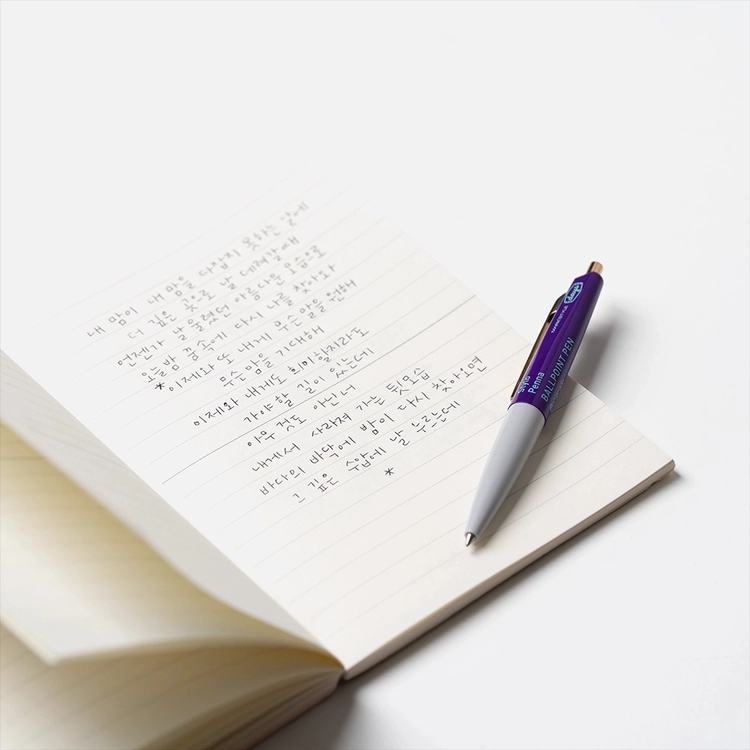 내 맘이 내 맘을 다잡지 못하는 날에
더 깊은 곳으로 날 데려갈 때
언젠가 날 울렸던 아름다운 모습으로
오늘밤 꿈속에 다시 나를 찾아와
*이제와 또 내게 무슨 말을 원해
무슨 맘을 기대해
이제와 내게도 희미할지라도
가야 할 길이 있는데
아무 것도 아닌 너
내게서 사라져 가는 뒷모습
바다의 바닥에 밤이 다시 찾아오면
그 깊은 수압에 날 누르는데
*
Penna
BALLPOINT PEN